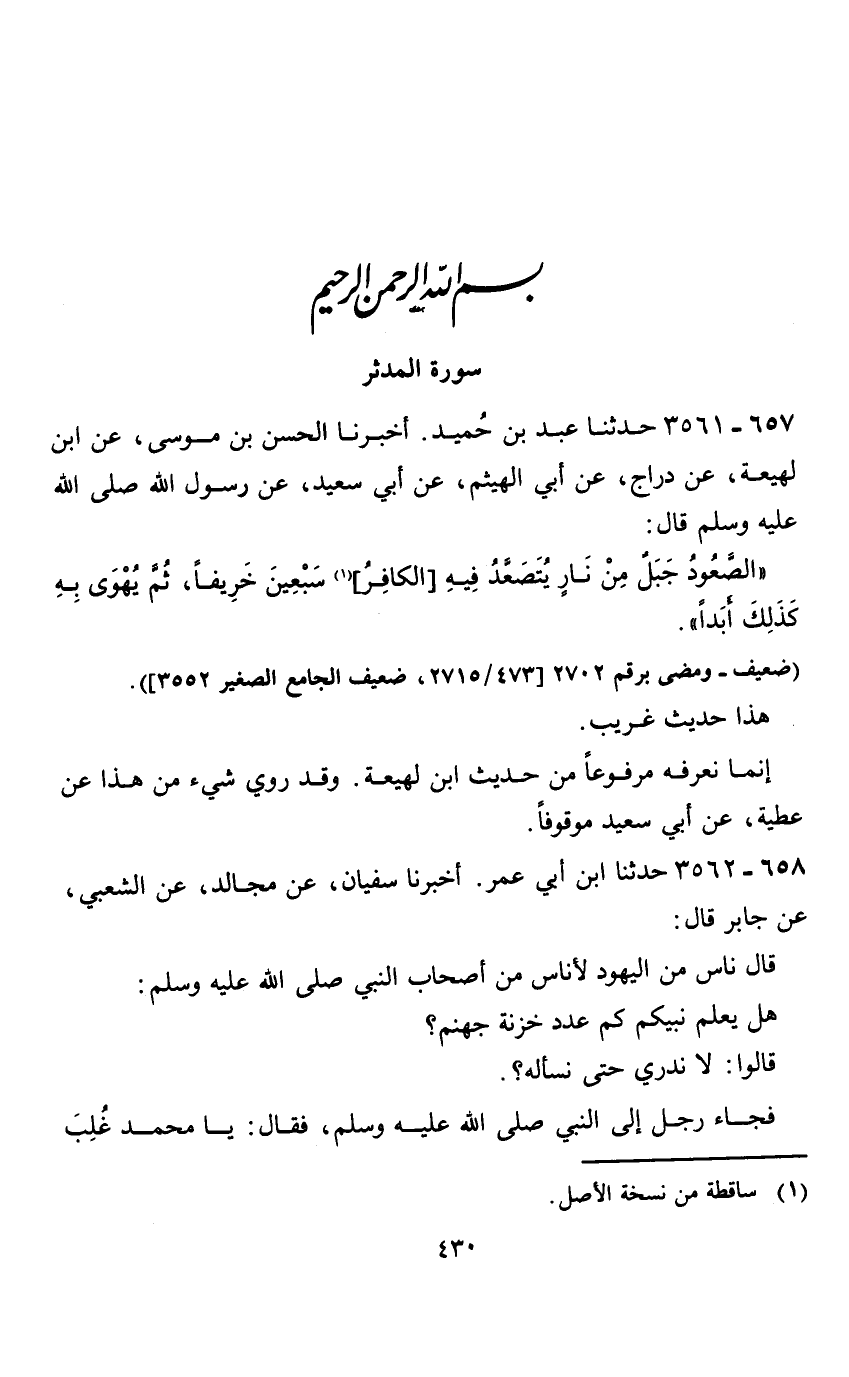 بسم الله الرحمن الرحيم
سورة المدثر
٦٥٧ - ٣٥٦١ حدثنا عبد بن حُميد. أخبرنا الحسن بن موسى، عن ابن
لهيعة، عن دراج، عن أبي الهيثم، عن أبي سعيد، عن رسول الله صلى الله
عليه وسلم قال:
«الصَّعُودُ جَبَلٌ مِنْ نَارٍ يُتَصَعَّدُ فِيهِ [الكافِرُ]⁽¹⁾ سَبْعِينَ خَرِيفاً، ثُمَّ يُهْوَى بِهِ
كَذَلِكَ أَبَداً».
(ضعيف - ومضى برقم ٢٧٠٢ [٢٧١٥/٤٧٣، ضعيف الجامع الصغير ٣٥٥٢]).
هذا حديث غريب.
إنما نعرفه مرفوعاً من حديث ابن لهيعة. وقد روي شيء من هذا عن
عطية، عن أبي سعيد موقوفاً.
٦٥٨ - ٣٥٦٢ حدثنا ابن أبي عمر. أخبرنا سفيان، عن مجالد، عن الشعبي،
عن جابر قال:
قال ناس من اليهود لأناس من أصحاب النبي صلى الله عليه وسلم:
هل يعلم نبيكم كم عدد خزنة جهنم؟
قالوا: لا ندري حتى نسأله؟.
فجاء رجل إلى النبي صلى الله عليه وسلم، فقال: يا محمد غُلِبَ
(١) ساقطة من نسخة الأصل.
٤٣٠